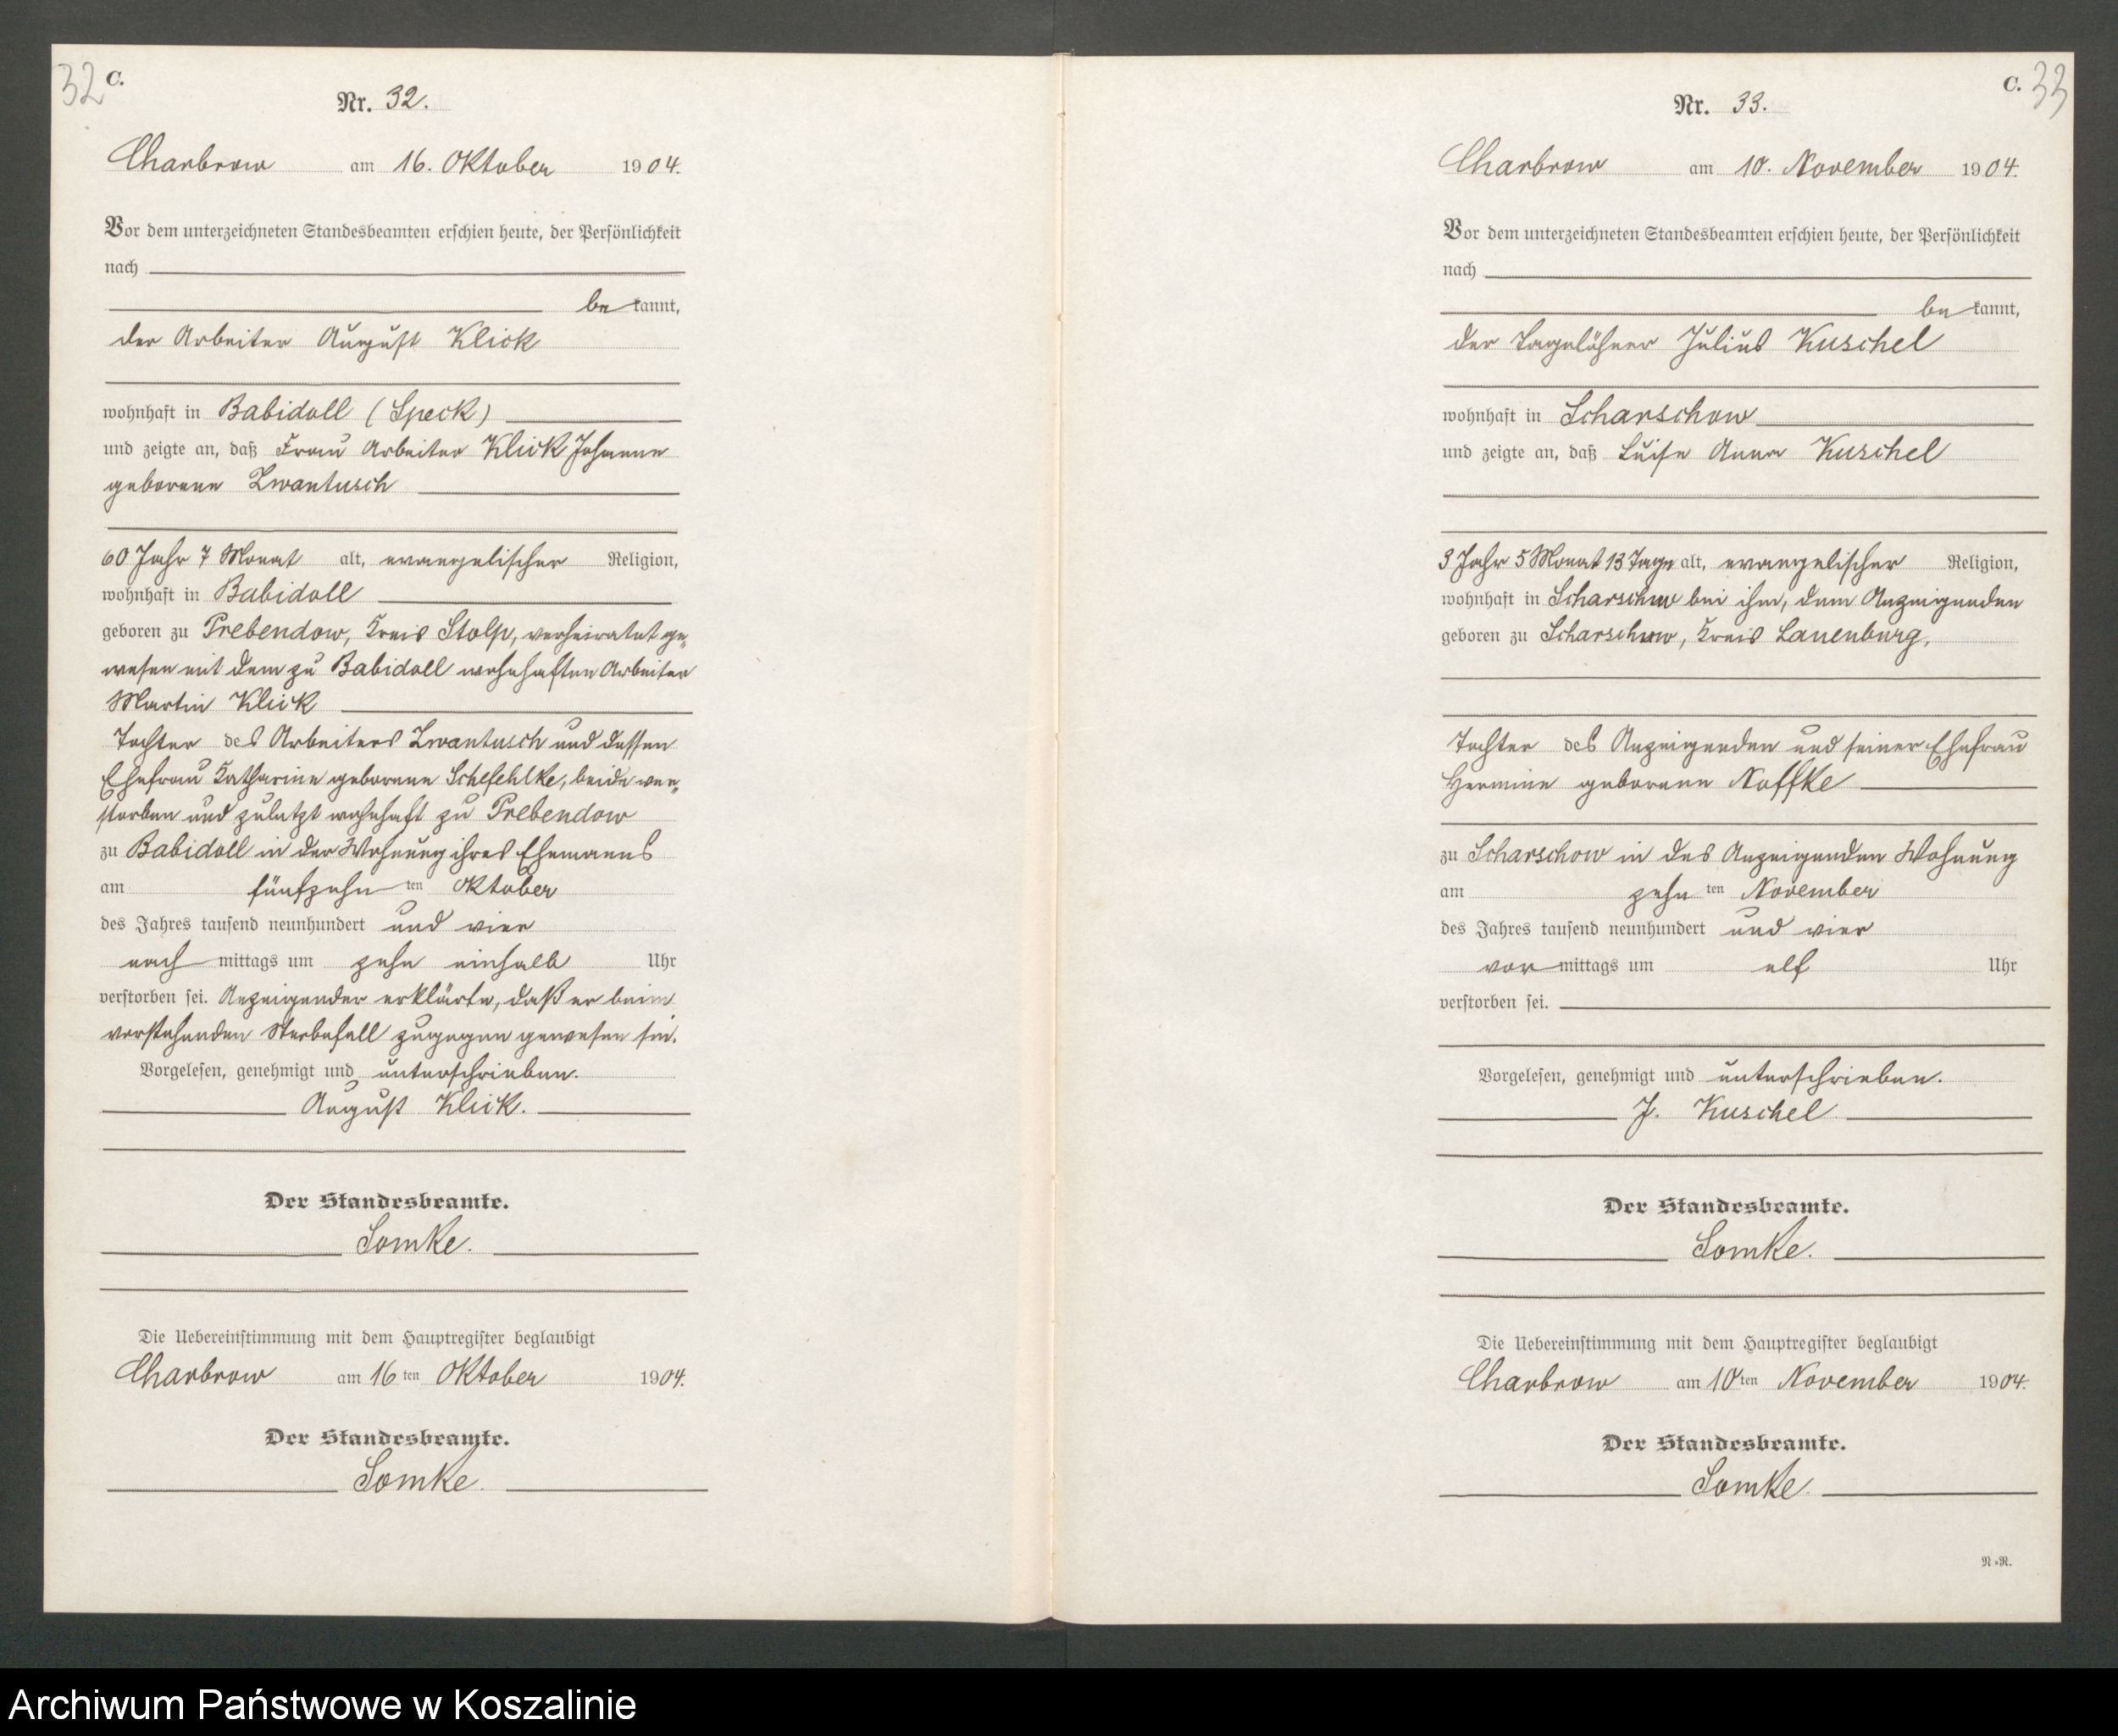 32
C.
Nr. 32.
Charbrow am 16. Oktober 1904.
Vor dem unterzeichneten Standesbeamten erschien heute, der Persönlichkeit
nach
be kannt,
der Arbeiter August Klick
wohnhaft in Babidoll (Speck)
und zeigte an, daß Frau Arbeiter Klick Johanne
geborene Zwantusch
60 Jahr 7 Monat alt, evangelischer Religion,
wohnhaft in Babidoll
geboren zu Prebendow, Kreis Stolp, verheiratet ge-
wesen mit dem zu Babidoll wohnhaften Arbeiter
Martin Klick
Tochter des Arbeiters Zwantusch und dessen
Ehefrau Katharine geborene Schefehlke, beide ver-
storben und zuletzt wohnhaft zu Prebendow
zu Babidoll in der Wohnung ihres Ehemanns
am fünfzehn ten Oktober
des Jahres tausend neunhundert und vier
nach mittags um zehn einhalb Uhr
verstorben sei. Anzeigender erklärte, daß er beim
vorstehenden Sterbefall zugegen gewesen sei.
Vorgelesen, genehmigt und unterschrieben.
August Klick.
Der Standesbeamte.
Somke.
Die Uebereinstimmung mit dem Hauptregister beglaubigt
Charbrow am 16 ten Oktober 1904.
Der Standesbeamte.
Somke.
C.
33
Nr. 33.
Charbrow am 10. November 1904.
Vor dem unterzeichneten Standesbeamten erschien heute, der Persönlichkeit
nach
be kannt,
der Tagelöhner Julius Kuschel
wohnhaft in Scharschow
und zeigte an, daß Luise Anna Kuschel
3 Jahr 5 Monat 13 Tage alt, evangelischer Religion,
wohnhaft in Scharschow bei ihm, dem Anzeigenden
geboren zu Scharschow, Kreis Lauenburg,
Tochter des Anzeigenden und seiner Ehefrau
Hermine geborene Noffke
zu Scharschow in des Anzeigenden Wohnung
am zehn ten November
des Jahres tausend neunhundert und vier
vor mittags um elf Uhr
verstorben sei.
Vorgelesen, genehmigt und unterschrieben.
J. Kuschel
Der Standesbeamte.
Somke.
Die Uebereinstimmung mit dem Hauptregister beglaubigt
Charbrow am 10 ten November 1904.
Der Standesbeamte.
Somke.
N.-R.
Archiwum Państwowe w Koszalinie